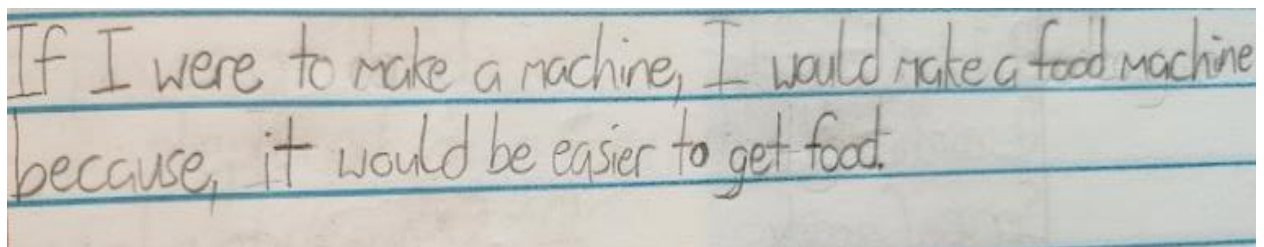 If I were to make a machine, I would make a food machine
because, it would be easier to get food.